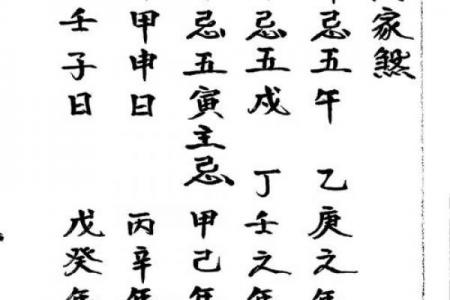 家煞
忌五午 乙庚之年
忌五戌 丁壬之年
忌五寅主忌 甲己年
甲申日 丙辛年
壬子日 戊癸年